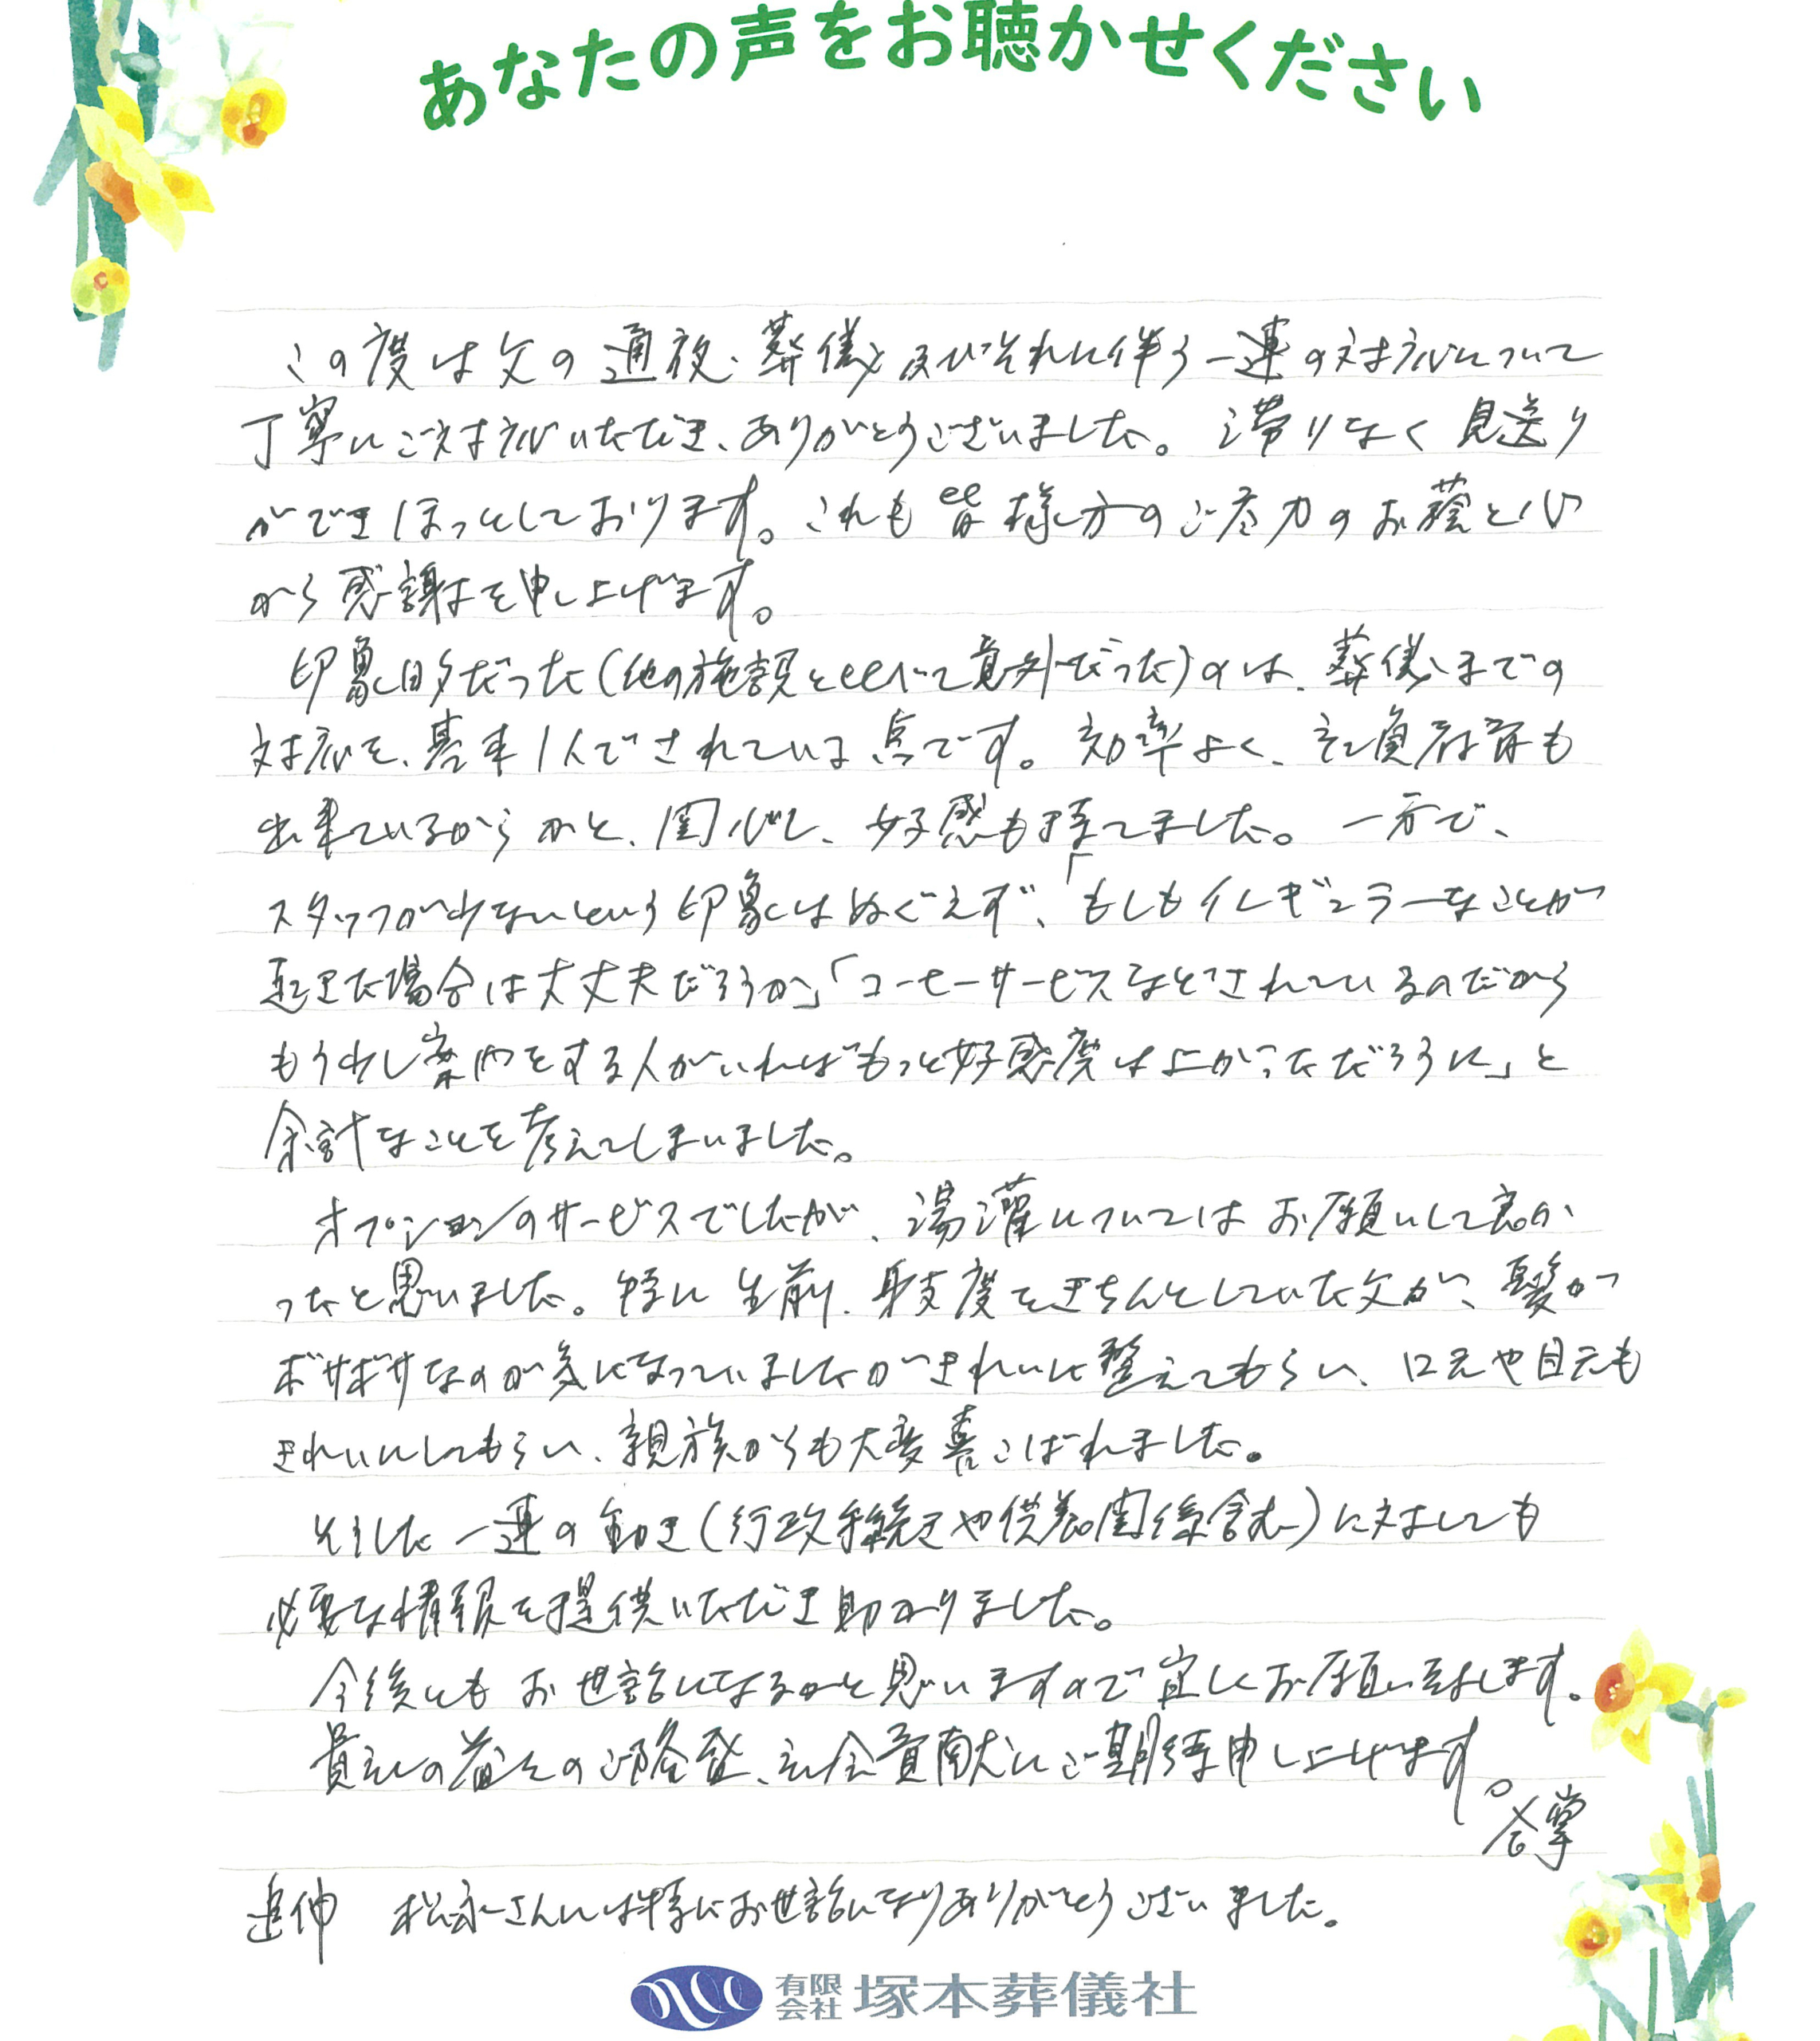 あなたの声をお聴かせください
この度は父の通夜、葬儀、及びそれに伴う一連の対応について
丁寧にご対応いただき、ありがとうございました。滞りなく見送り
ができほっとしております。これも皆様方のご尽力のお蔭と心
から感謝を申し上げます。
印象的だった(他の施設と比べて意外だった)のは、葬儀までの
対応を、基本1人でされている点です。効率よく、社員教育も
出来ているからかと、関心し、好感も持てました。一方で、
スタッフが少ないという印象はぬぐえず、「もしもイレギュラーなことが
起きた場合は大丈夫だろうか」「コーヒーサービスなどされているのだから
もう少し案内をする人がいればもっと好感度は上がっただろうに」と
余計なことを考えてしまいました。
オプションのサービスでしたが、湯灌についてはお願いして良か
ったと思いました。特に生前、身支度をきちんとしていた父が、髪が
ボサボサなのが気になっていましたがきれいに整えてもらい、口元や目元も
きれいにしてもらい、親族からも大変喜こばれました。
そうした一連の動き(行政手続きや供養関係含む)に対しても
必要な情報を提供いただき助かりました。
今後ともお世話になるかと思いますので宜しくお願い致します。
貴社の益々の御発展、社会貢献にご期待申し上げます。
合掌
追伸 松永さんには特にお世話になりありがとうございました。
有限会社 塚本葬儀社